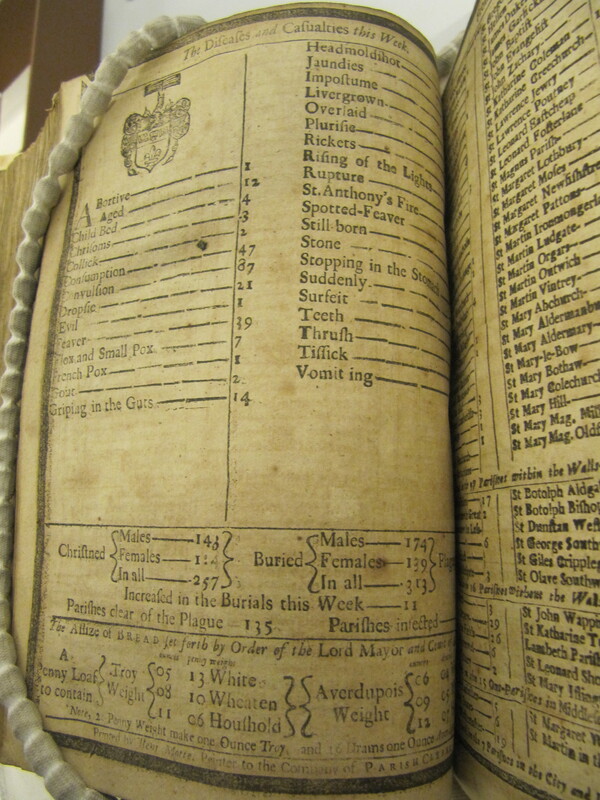 The Diseases and Casualties this Week.
Abortive 1
Aged 12
Child Bed 4
Chrisoms 3
Collick 2
Consumption 47
Convulsion 87
Dropsie 21
Evil 1
Feaver 39
Flox and Small Pox 7
French Pox 1
Gout 2
Griping in the Guts 14
Headmoldshot
Jaundies
Impostume
Livergrown
Overlaid
Plurisie
Rickets
Rising of the Lights
Rupture
St. Anthony's Fire
Spotted-Feaver
Still-born
Stone
Stopping in the Stom
Suddenly
Surfeit
Teeth
Thrush
Tissick
Vomiting
Christned Males 143
Females
In all 257
Buried Males 174
Females 139
In all 313
Increased in the Burials this Week 11
Parishes clear of the Plague 135
Parishes infected
The Assize of BREAD set forth by Order of the Lord Mayor and
A Penny Loaf to contain Troy Weight
05 13 White
08 10 Wheaten
11 06 Houshold
Averdupois Weight
06
09
12
Note, 2 Penny Weight make one Ounce Troy, and 16 Drams one Ounce
Printer to the Company of PARISH
Katharine Coleman
Katharine Creechurch
Lawrence Jewry
St Lawrence Pountney
St Leonard Eastcheap
St Leonard Fosterlane
St Magnus Parish
St Margaret Lothbury
St Margaret Moses
St Margaret Newfishstre
St Margaret Pattons
St Martin Ironmongerla
St Martin Ludgate
St Martin Orgars
St Martin Outwich
St Martin Vintrey
St Mary Abchurch
St Mary Aldermanbu
St Mary Aldermary
St Mary-le-Bow
St Mary Bothaw
St Mary Colechurch
St Mary Hill
St Mary Mag. Mil
St Mary Mag. Oldf
Parishes within the Walls
St Botolph Aldga
St Botolph Bisho
St Dunstan West
St George South
St Giles Cripple
St Olave Southw
St John Wappi
St Katharine T
Lambeth Parish
St Leonard Sho
St Mary Isling
in Middlese
St Margaret W
St Martin in th
Parishes in the City and